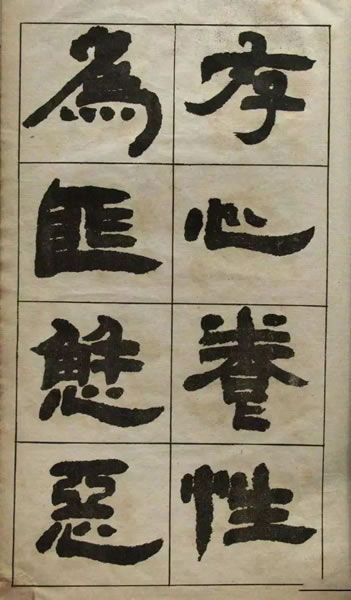 存心養性
為匪懈惡